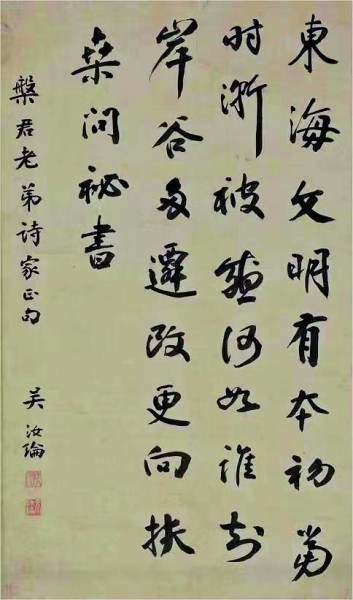 東海文明有本初當
时漸被盛何如誰知
岸谷多遷改更向扶
桒问祕書
槃君老弟詩家正句
吴汝綸